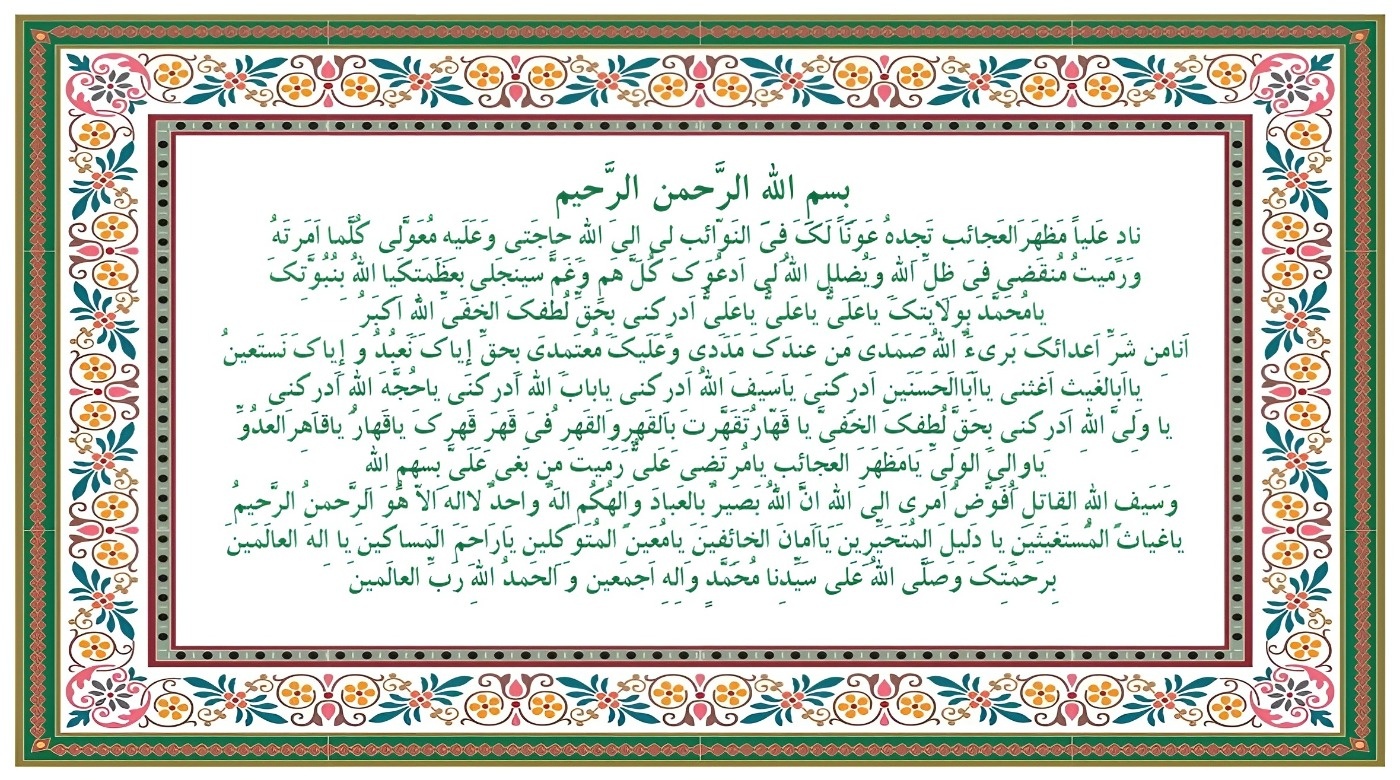 بسم الله الرَّحمن الرَّحیم
ناد عَلیاً مَظهَرَالعَجائب تَجدهُ عَونَاً لَکَ فیَ النوّائب لی إلیَ اللهِ حاجَتی وَعَلَیهِ مُعَوَّلی کُلَّما اَمَرتَهُ
وَرَمَیتُ مُنقَضی فیَ ظلِّ اَللهِ وَیُضللِ اللهُ لی اَدعُوکَ کُلَّ هَمٍ وَغَمٍّ سَیَنجَلی بعَظَمَتکَیا اللهُ بِنُبُوَّتِکَ
یامُحَمَّدَ بِوَلایَتکَ یاعَلَیُّ یاعَلَیُّ یاعَلیُّ اَدرکنی بحَقِّ لُطفکَ الخَفَیِّ اللهُ اَکبَرُ
اَنامِن شَرِّ اَعدائکَ بَریءٌ اللهُ صَمَدی مَن عندکَ مَدَدی وَعَلَیکَ مُعتمدی بِحقِّ إیاکَ نَعبُدُ وَ إیاکَ نَستَعینُ
یااَبالغَیث اَغثنی یااَبَالحَسَنَین اَدرکنیَ یاسَیفَ اللهُ اَدرکنی یابابَ الله اَدرکنَی یاحُجَّهَ الله اَدرکنی
یا وَلیَّ اللهِ اَدرکنی بحَقَّ لُطفکَ الخَفیَّ یا قَهّارُتَقَهَّرتَ بَالقَهرِوَالقَهرُ فیُ قَهرَ قَهرِکَ یاقَهارُ یاقاهرَالعَدُوِّ
یاوالیَ الوَلیَّ یَامَظهَرَ العَجائب یامُرتَضی عَلَیُّ رَمَیتَ مَن بَغی عَلَیَّ بِسَهم الله
وَسَیفَ اللهِ القاتلِ اُفَوِّضُ اَمری إلیَ الله انَّ اللهُ بَصیرٌ بالعَبادَ وَالهُکُم الهٌ واحدٌ لااله الاّ هُوَ اَلرَّحمنُ الرَّحیمُ
یاغیاثَ المُستَغیثَینَ یا دلیلَ المُتَحَیِّرین یااَمانَ الخائفینَ یامُعَینَ المُتَوَکلین یاراحَمَ المَساکینَ یا الهَ العالَمَین
بِرَحمَتِکَ وَصَلَّی اللهُ عَلی سَیِّدنا مُحَمَّدٍ وَالِهِ اَجمَعین وَ اَلحَمدُ اللهِ رَبِّ العالَمینَ